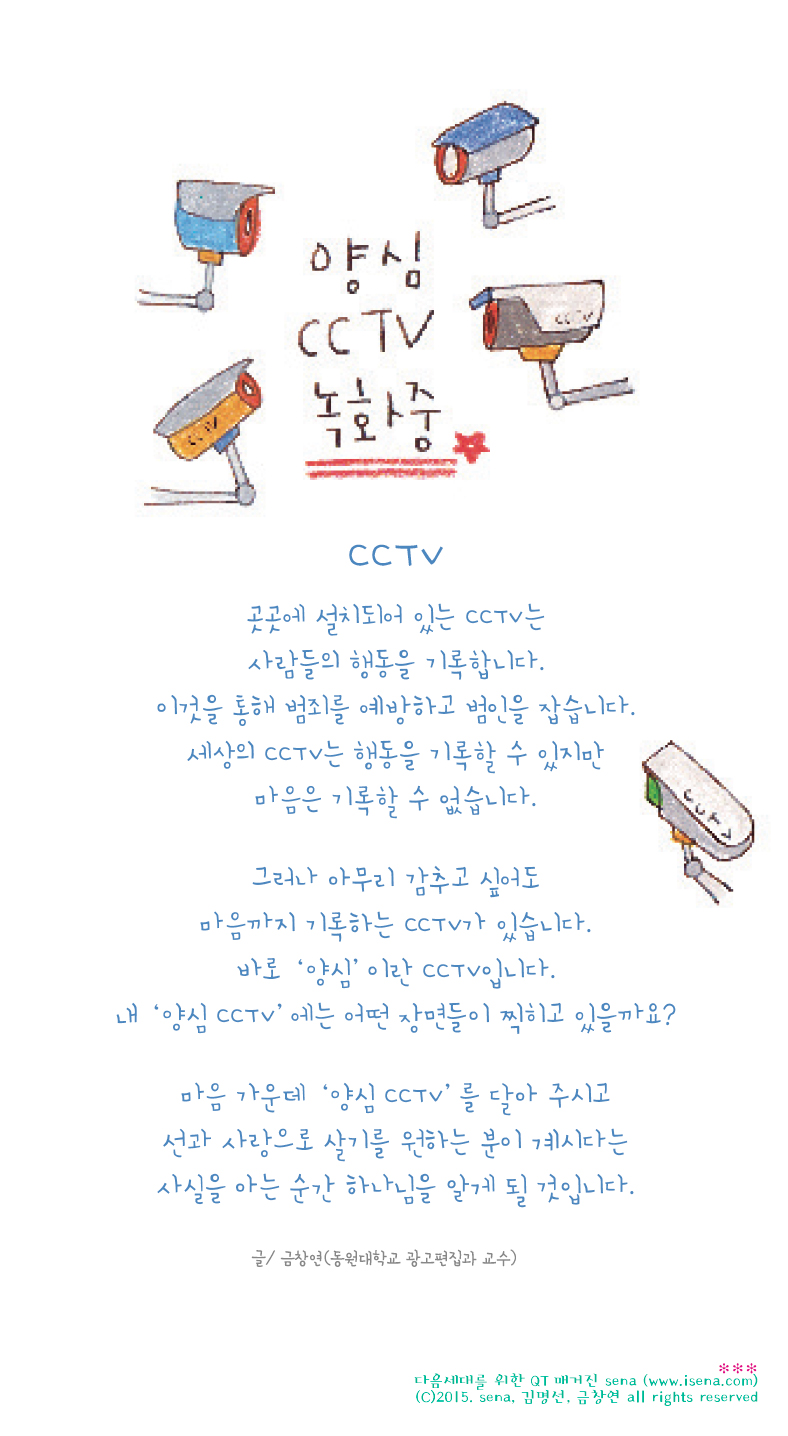 양심
CCTV
녹화중
CCTV
CCTV
CCTV
곳곳에 설치되어 있는 CCTV는
사람들의 행동을 기록합니다.
이것을 통해 범죄를 예방하고 범인을 잡습니다.
세상의 CCTV는 행동을 기록할 수 있지만
마음은 기록할 수 없습니다.
CCTV
그러나 아무리 감추고 싶어도
마음까지 기록하는 CCTV가 있습니다.
바로 ‘양심’이란 CCTV입니다.
내 ‘양심 CCTV’에는 어떤 장면들이 찍히고 있을까요?
마음 가운데 ‘양심 CCTV’를 달아 주시고
선과 사랑으로 살기를 원하는 분이 계시다는
사실을 아는 순간 하나님을 알게 될 것입니다.
글/ 금창연(동원대학교 광고편집과 교수)
***
다음세대를 위한 QT 매거진 sena (www.isena.com)
(C)2015. sena, 김명선, 금창연 all rights reserved